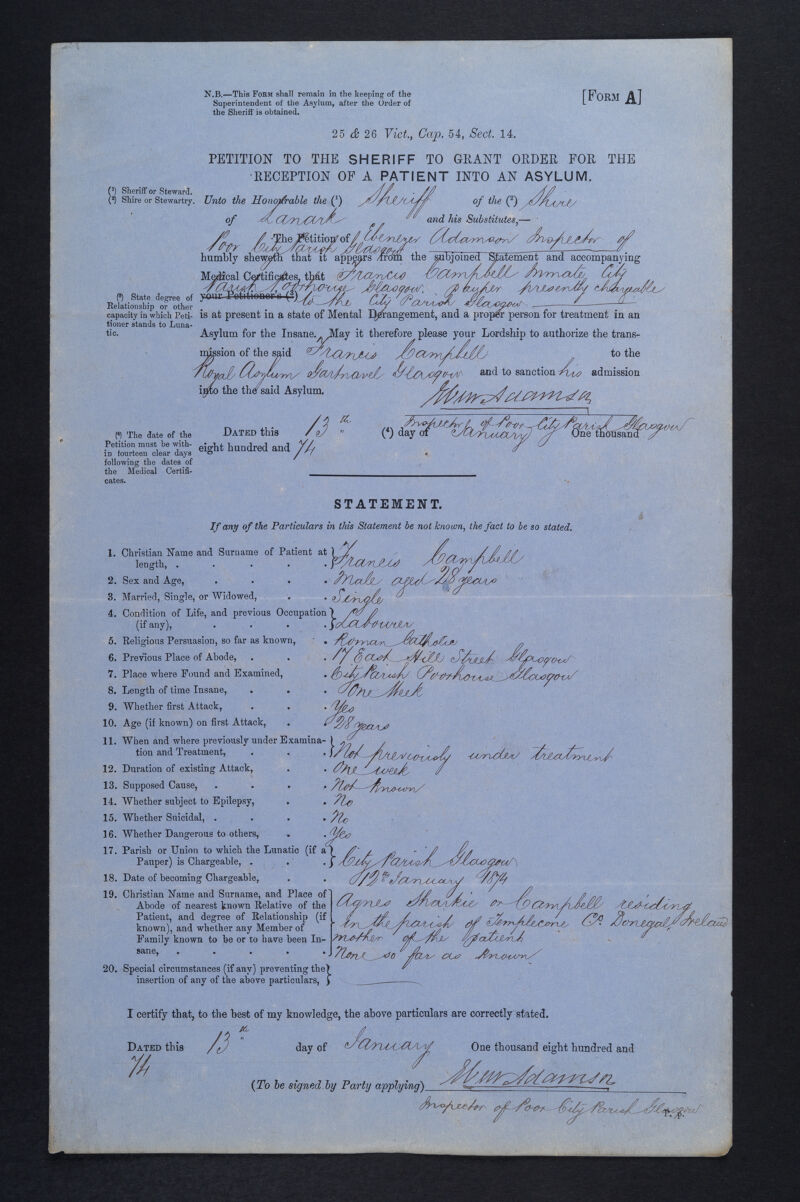 N.B.—This Form shall remain in the keeping of the
Superintendent of the Asylum, after the Order of
the Sheriff is obtained.
[Form A]
25 & 26 Vict., Cap. 54, Sect. 14.
PETITION TO THE SHERIFF TO GRANT ORDER FOR THE
RECEPTION OF A PATIENT INTO AN ASYLUM.
(1) Sheriff or Steward.
(2) Shire or Stewartry.
Unto the Honourable the (1) Sheriff of the (2) Shire
of Lanark and his Substitutes,—
The Petition of Ebenezer Adamson Inspector of
Poor City Parish Glasgow
humbly sheweth that it appears from the subjoined Statement and accompanying
Medical Certificates, that Francis Campbell Inmate, City
Parish Poorhouse Glasgow. Pauper presently chargeable
(3) State degree of
Relationship or other
capacity in which Peti-
tioner stands to Luna-
tic.
your Petitioner's (3) to the City Parish Glasgow
is at present in a state of Mental Derangement, and a proper person for treatment in an
Asylum for the Insane. May it therefore please your Lordship to authorize the trans-
mission of the said Francis Campbell to the
Royal Asylum Gartnavel Glasgow and to sanction his admission
into the the said Asylum.
Eben Adamson
Inspector of Poor City Parish Glasgow
(4) The date of the
Petition must be with-
in fourteen clear days
following the dates of
the Medical Certifi-
cates.
Dated this 13th (4) day of January One thousand
eight hundred and 74
STATEMENT.
If any of the Particulars in this Statement be not known, the fact to be so stated.
1. Christian Name and Surname of Patient at
length, . . . . . Francis Campbell
2. Sex and Age, . . . . Male aged 28 years
3. Married, Single, or Widowed, . . Single
4. Condition of Life, and previous Occupation
(if any), . . . . Labourer
5. Religious Persuasion, so far as known, . . Roman Catholic
6. Previous Place of Abode, . . . 17 East Hill Street Glasgow
7. Place where Found and Examined, . City Parish Poorhouse Glasgow
8. Length of time Insane, . . . One Week
9. Whether first Attack, . . . Yes
10. Age (if known) on first Attack, . . 28 years
11. When and where previously under Examina-
tion and Treatment, . . . Not previously under treatment
12. Duration of existing Attack, . . One week
13. Supposed Cause, . . . . Not known
14. Whether subject to Epilepsy, . . No
15. Whether Suicidal, . . . . No
16. Whether Dangerous to others, . . Yes
17. Parish or Union to which the Lunatic (if a
Pauper) is Chargeable, . . . City Parish Glasgow
18. Date of becoming Chargeable, . . 12th January 1874
19. Christian Name and Surname, and Place of
Abode of nearest known Relative of the
Patient, and degree of Relationship (if
known), and whether any Member of
Family known to be or to have been In-
sane, . . . . .
Agnes Sharkie or Campbell residing
in the parish of Templecone Co. Donegal, Ireland
mother of the patient
None so far as known
20. Special circumstances (if any) preventing the
insertion of any of the above particulars,
I certify that, to the best of my knowledge, the above particulars are correctly stated.
Dated this 13th day of January One thousand eight hundred and
74
(To be signed by Party applying) Eben Adamson
Inspector of Poor City Parish Glasgow